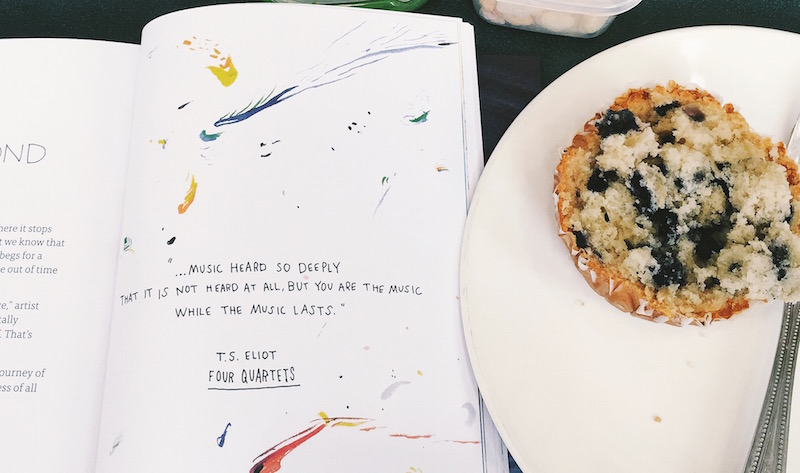 OND
here it stops
t we know that
begs for a
e out of time
e," artist
tally
. That's
ourney of
ess of all
"...MUSIC HEARD SO DEEPLY
THAT IT IS NOT HEARD AT ALL, BUT YOU ARE THE MUSIC
WHILE THE MUSIC LASTS."
T.S. ELIOT
FOUR QUARTETS